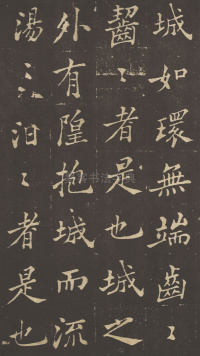 城如環無端齒〻
齧〻者是也城之
外有隍抱城而流
湯〻汨〻者是也